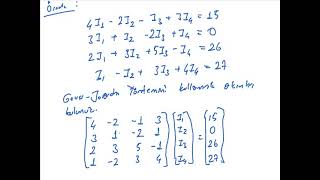 Örnek:
4I₁ - 2I₂ - I₃ + 3I₄ = 15
3I₁ + I₂ - 2I₃ + I₄ = 0
2I₁ + 3I₂ + 5I₃ - I₄ = 26
I₁ - 2I₂ + 3I₃ + 4I₄ = 27
Gauss-Jordan Yöntemini kullanarak akımları
bulunuz.
[4 -2 -1 3] [I₁] = [15]
[3 1 -2 1] [I₂] [0]
[2 3 5 -1] [I₃] [26]
[1 -2 3 4] [I₄] [27]